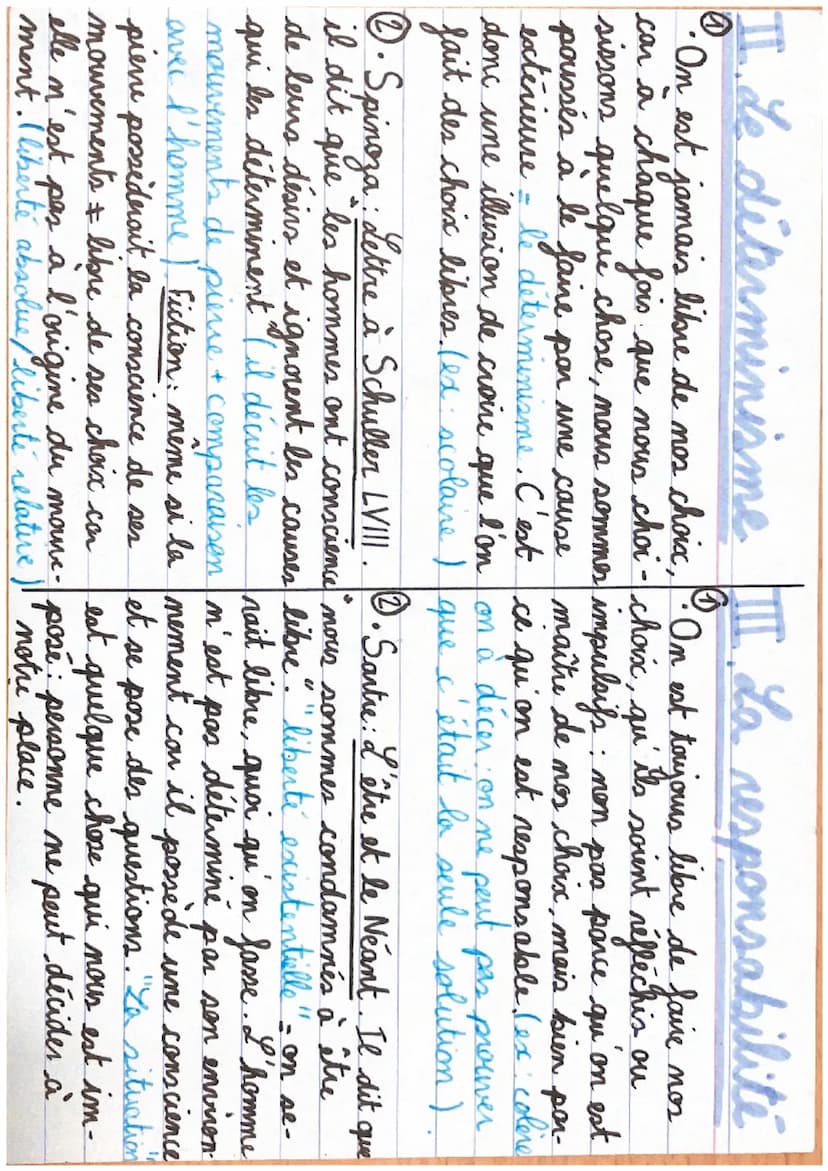 II. Le déterminisme
① . On est jamais libre de nos choix,
car à chaque fois que nous choi-
sissons quelque chose, nous sommes
poussés à le faire par une cause
extérieure = le déterminisme. C'est
donc une illusion de croire que l'on
fait des choix libres. (ex: scolaire)
② . Spinoza : Lettre à Schuller LVIII.
il dit que "les hommes ont conscience
de leurs désirs et ignorent les causes
qui les déterminent" (il décrit les
mouvements de pierre + comparaison
avec l'homme). Fiction : même si la
pierre possèderait la conscience de ses
mouvements ≠ libre de ses choix car
elle n'est pas à l'origine du mouve-
ment. (liberté absolue/liberté relative)
III. La responsabilité
① . On est toujours libre de faire nos
choix, qu'ils soient réfléchis ou
impulsifs : non pas parce qu'on est
maître de nos choix, mais bien par-
ce qu'on est responsable. (ex: colère
on a décer: on ne peut pas prouver
que c'était la seule solution).
② . Sartre : L'être et le Néant. Il dit que
"nous sommes condamnés à être
libre." "liberté existentielle" = on se-
rait libre, quoi qu'on fasse. L'homme
n'est pas déterminé par son environ-
nement car il possède une conscience
et se pose des questions. "La situation"
est quelque chose qui nous est im-
posé : personne ne peut décider à
notre place.